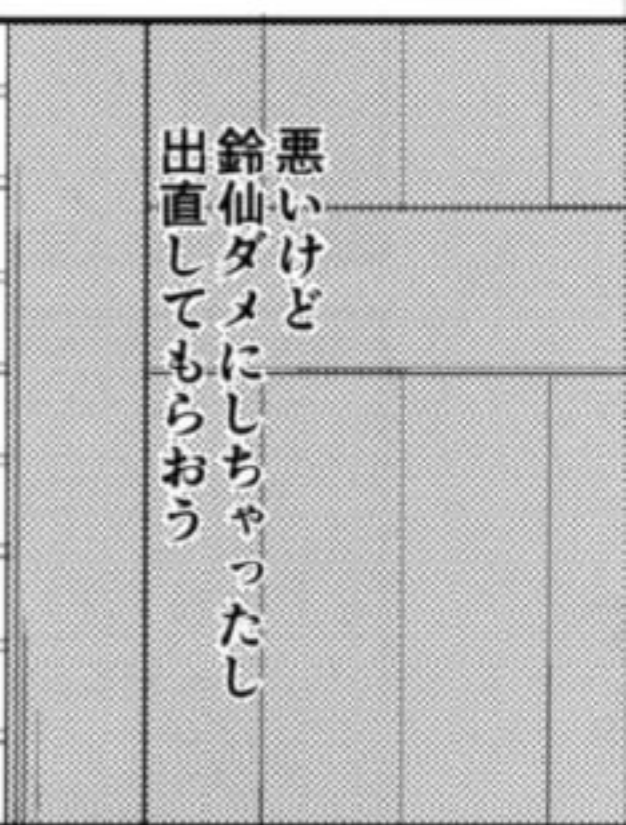 悪いけど
鈴仙ダメにしちゃったし
出直してもらおう